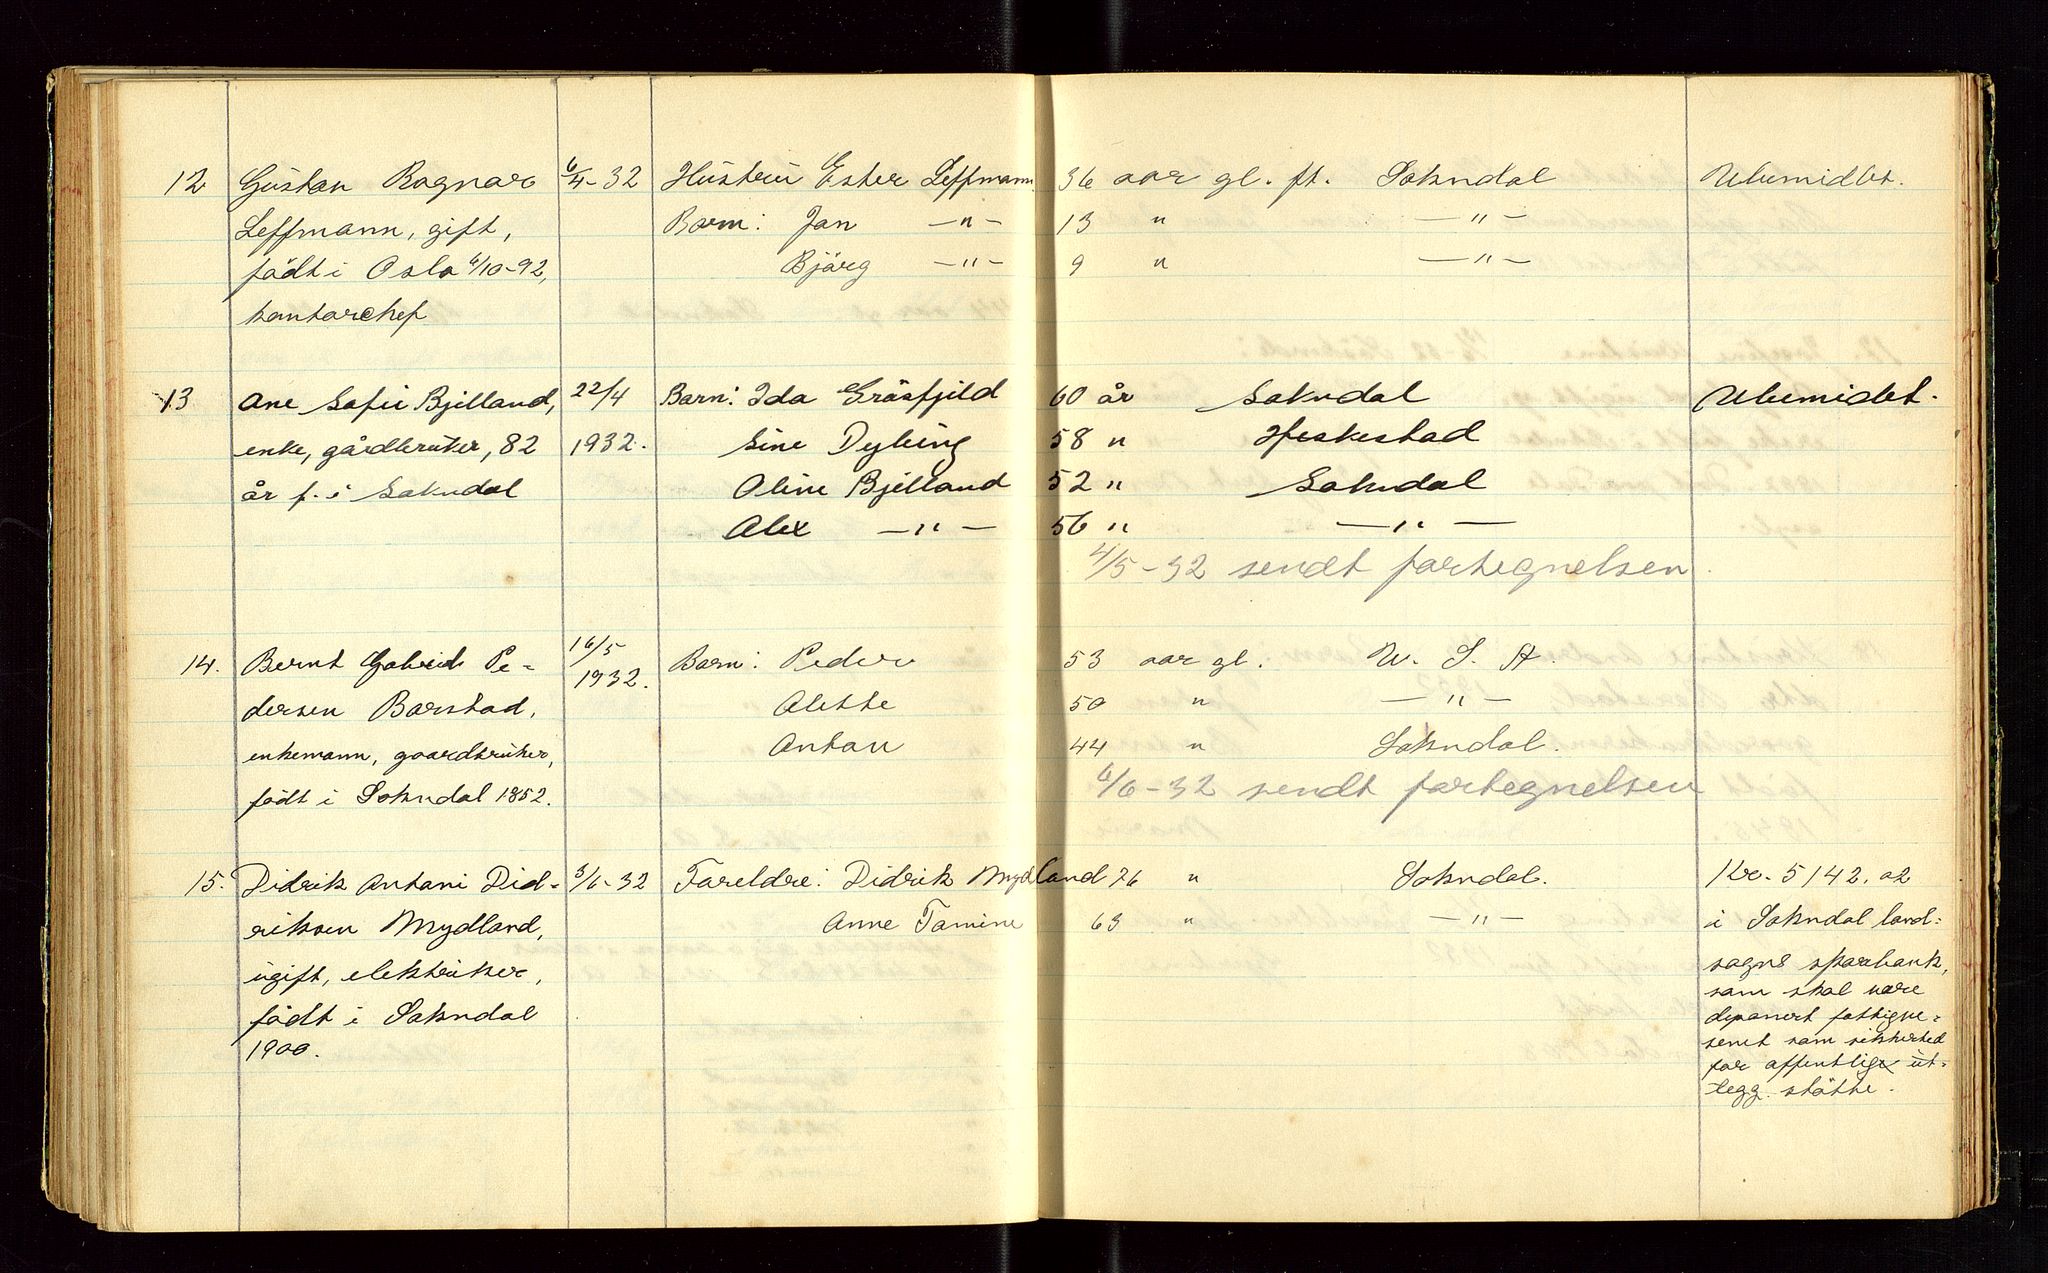 12 Gustav Ragnar 6/4-32 Hustru Ester Leffmann 36 aar gl. ft. Sokndal Ubemidlet.
Leffmann, gift, Barn: Jan —"— 13 " —"—
födt i Oslo 6/10-92, Bjärg —"— 9 " —"—
kontorchef
13 Ane Sofie Bjelland, 22/4 Barn: Ida Gräsfjeld 60 år Sokndal Ubemidlet.
enke, gårdbruker, 82 1932. Sine Dybing 58 " Heskestad
år f. i Sokndal Oline Bjelland 52 " Sokndal
Alex —"— 56 " —"—
4/5-32 sendt fortegnelsen.
14. Bernt Gabriel Pe- 16/5 Barn: Peder 53 aar gl. U. S. A.
dersen Barstad, 1932. Alette 50 " —"—
enkemann, gaardbruker, Anton 44 " Sokndal.
födt i Sokndal 1852. 6/6-32 sendt fortegnelsen
15. Didrik Antoni Did- 3/6-32 Foreldre: Didrik Mydland 76 " Sokndal. Kr. 5142,02
riksen Mydland, Anne Tomine 63 " —"— i Sokndal land-
ugift, elektriker, sogns sparbank,
som skal være
födt i Sokndal deponert fattigve-
senet som sikkerhed
1900. for offentlig ut-
legg. stötte.